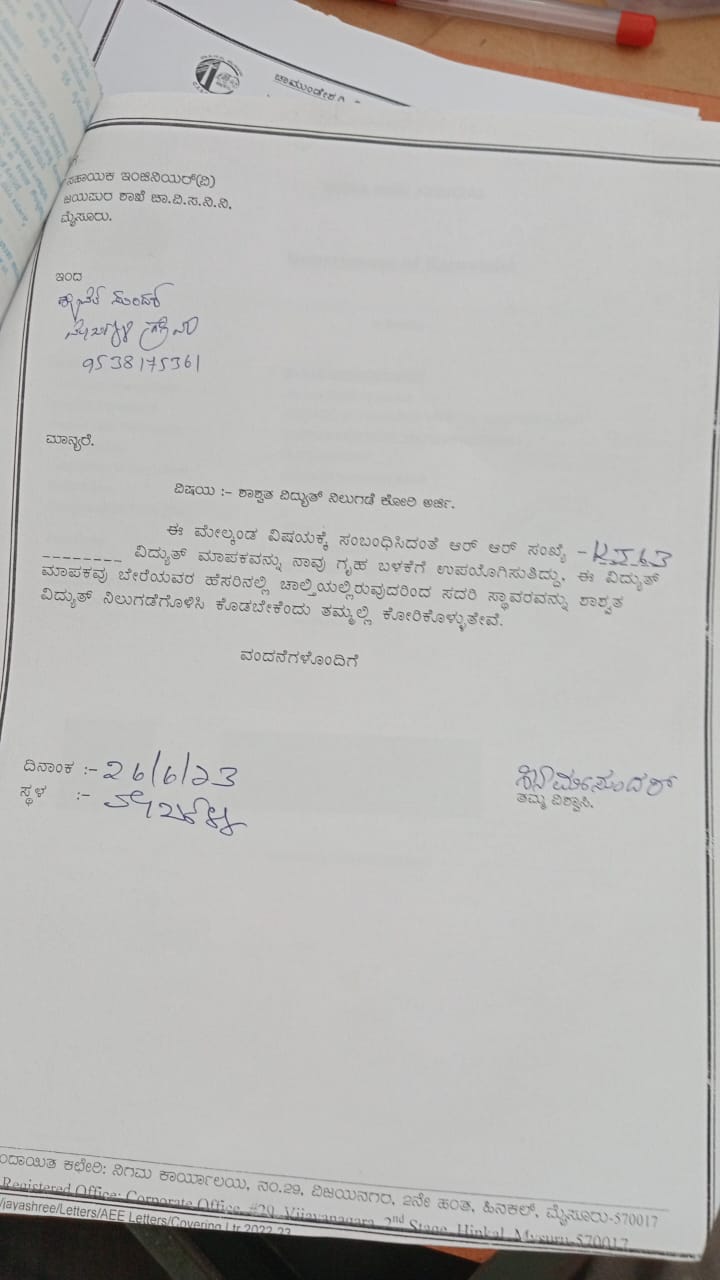 ಚಾಮುಂಡೇಶ್ವರಿ
ಸಹಾಯಕ ಇಂಜಿನಿಯರ್(ವಿ)
ಜಯಪುರ ಶಾಖೆ ಚಾ.ವಿ.ಸ.ನಿ.ನಿ,
ಮೈಸೂರು.
ಇಂದ
9538175361
ಮಾನ್ಯರೆ.
ವಿಷಯ :- ಶಾಶ್ವತ ವಿದ್ಯುತ್ ನಿಲುಗಡೆ ಕೋರಿ ಅರ್ಜಿ.
ಈ ಮೇಲ್ಕಂಡ ವಿಷಯಕ್ಕೆ ಸಂಬಂಧಿಸಿದಂತೆ ಆರ್ ಆರ್ ಸಂಖ್ಯೆ -
________ ವಿದ್ಯುತ್ ಮಾಪಕವನ್ನು ನಾವು ಗೃಹ ಬಳಕೆಗೆ ಉಪಯೋಗಿಸುತಿದ್ದು, ಈ ವಿದ್ಯುತ್
ಮಾಪಕವು ಬೇರೆಯವರ ಹೆಸರಿನಲ್ಲಿ ಚಾಲ್ತಿಯಲ್ಲಿರುವುದರಿಂದ ಸದರಿ ಸ್ಥಾವರವನ್ನು ಶಾಶ್ವತ
ವಿದ್ಯುತ್ ನಿಲುಗಡೆಗೊಳಿಸಿ ಕೊಡಬೇಕೆಂದು ತಮ್ಮಲ್ಲಿ ಕೋರಿಕೊಳ್ಳುತೇವೆ.
ವಂದನೆಗಳೊಂದಿಗೆ
ದಿನಾಂಕ :- 26/6/23
ಸ್ಥಳ :-
ತಮ್ಮ ವಿಶ್ವಾಸಿ.
ಕಛೇರಿ: ನಿಗಮ ಕಾರ್ಯಾಲಯ, ನಂ.29, ವಿಜಯನಗರ, 2ನೇ ಹಂತ, ಹಿನಕಲ್, ಮೈಸೂರು-570017
Registered Office: Corporate Office, #29, Vijayanagara, 2nd Stage, Hinkal, Mysuru-570017
/jayashree/Letters/AEE Letters/Covering Ltr 2022-23